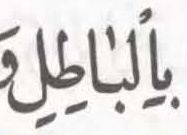 بِالْبَاطِلِ وَ